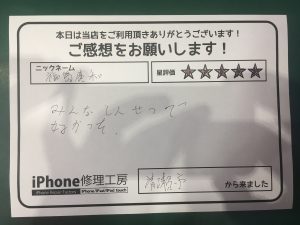 本日は当店をご利用頂きありがとうございます!
ご感想をお願いします!
ニックネーム
星評価 ★★★★★
みんなしんせつで
よかった。
iPhone修理工房
iPhone Repair Factory iPhone/iPad/iPod touch
から来ました